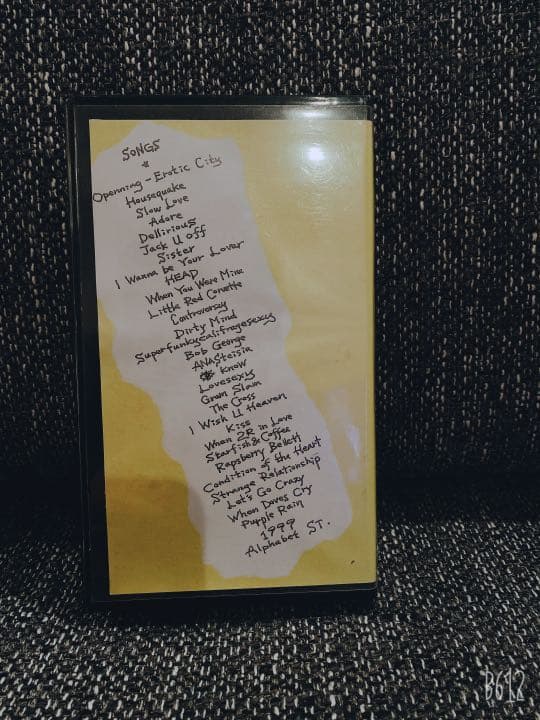 SONGS
*
Openning - Erotic City
Housequake
Slow Love
Adore
Dellirious
Jack U off
Sister
I Wanna be Your Lover
HEAD
When You Were Mine
Little Red Corvette
Controversy
Dirty Mind
Superfunkycalifragesexy
Bob George
ANAsteisia
Know
Lovesexy
Gram Slam
The Cross
I Wish U Heaven
Kiss
When 2R in Love
Starfish & Coffee
Rapsberry Bellett
Condition of the Heart
Strange Relationship
Let's Go Crazy
When Doves Cry
Purple Rain
1999
Alphabet ST.
B612